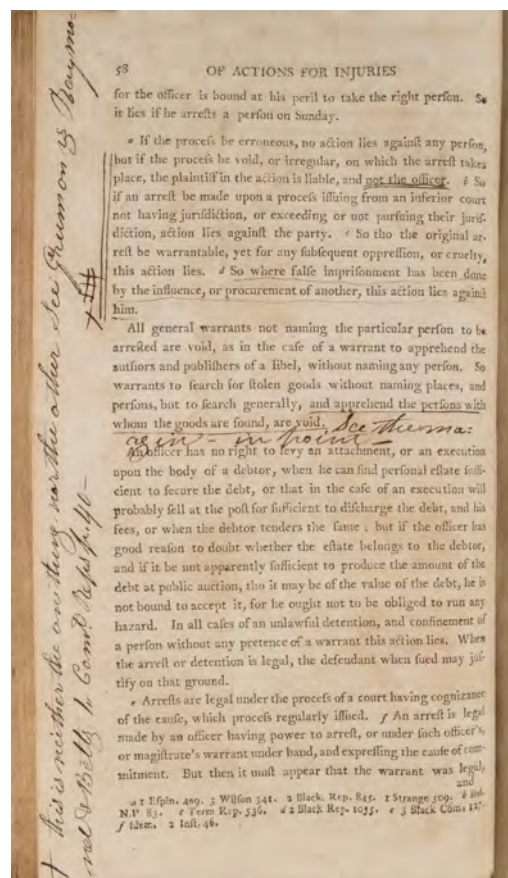 58 OF ACTIONS FOR INJURIES
for the officer is bound at his peril to take the right perſon. So
it lies if he arreſts a perſon on Sunday.
a If the proceſs be erroneous, no action lies againſt any perſon,
but if the proceſs be void, or irregular, on which the arreſt takes
place, the plaintiff in the action is liable, and not the officer. b So
if an arreſt be made upon a proceſs iſſuing from an inferior court
not having juriſdiction, or exceeding or not purſuing their juriſ-
diction, action lies againſt the party. c So tho the original ar-
reſt be warrantable, yet for any ſubſequent oppreſſion, or cruelty,
this action lies. d So where falſe impriſonment has been done
by the influence, or procurement of another, this action lies againſt
him.
All general warrants not naming the particular perſon to be
arreſted are void, as in the caſe of a warrant to apprehend the
authors and publiſhers of a libel, without naming any perſon. So
warrants to ſearch for ſtolen goods without naming places, and
perſons, but to ſearch generally, and apprehend the perſons with
whom the goods are found, are void. See the ma:
rgin - in point -
An officer has no right to levy an attachment, or an execution
upon the body of a debtor, when he can find perſonal eſtate ſuffi-
cient to ſecure the debt, or that in the caſe of an execution will
probably ſell at the poſt for ſufficient to diſcharge the debt, and his
fees, or when the debtor tenders the ſame; but if the officer has
good reaſon to doubt whether the eſtate belongs to the debtor,
and if it be not apparently ſufficient to produce the amount of the
debt at public auction, tho it may be of the value of the debt, he is
not bound to accept it, for he ought not to be obliged to run any
hazard. In all caſes of an unlawful detention, and confinement of
a perſon without any pretence of a warrant this action lies. When
the arreſt or detention is legal, the defendant when ſued may juſ-
tify on that ground.
e Arreſts are legal under the proceſs of a court having cognizance
of the cauſe, which proceſs regularly iſſued. f An arreſt is legal
made by an officer having power to arreſt, or under ſuch officer's,
or magiſtrate's warrant under hand, and expreſſing the cauſe of com-
mitment. But then it muſt appear that the warrant was legal,
and
a 1 Eſpin. 409. 3 Wilſon 341. 2 Black. Rep. 845. 1 Strange 509. b Bul.
N.P. 83. c Term Rep. 536. d 2 Black Rep. 1055. e 3 Black Com. 127.
f Idem. 2 Inſt. 46.
+ this is neither the one thing nor the other See Grumon vs Raymo-
nd & Betts 1 Connt. Reps p. 40 -